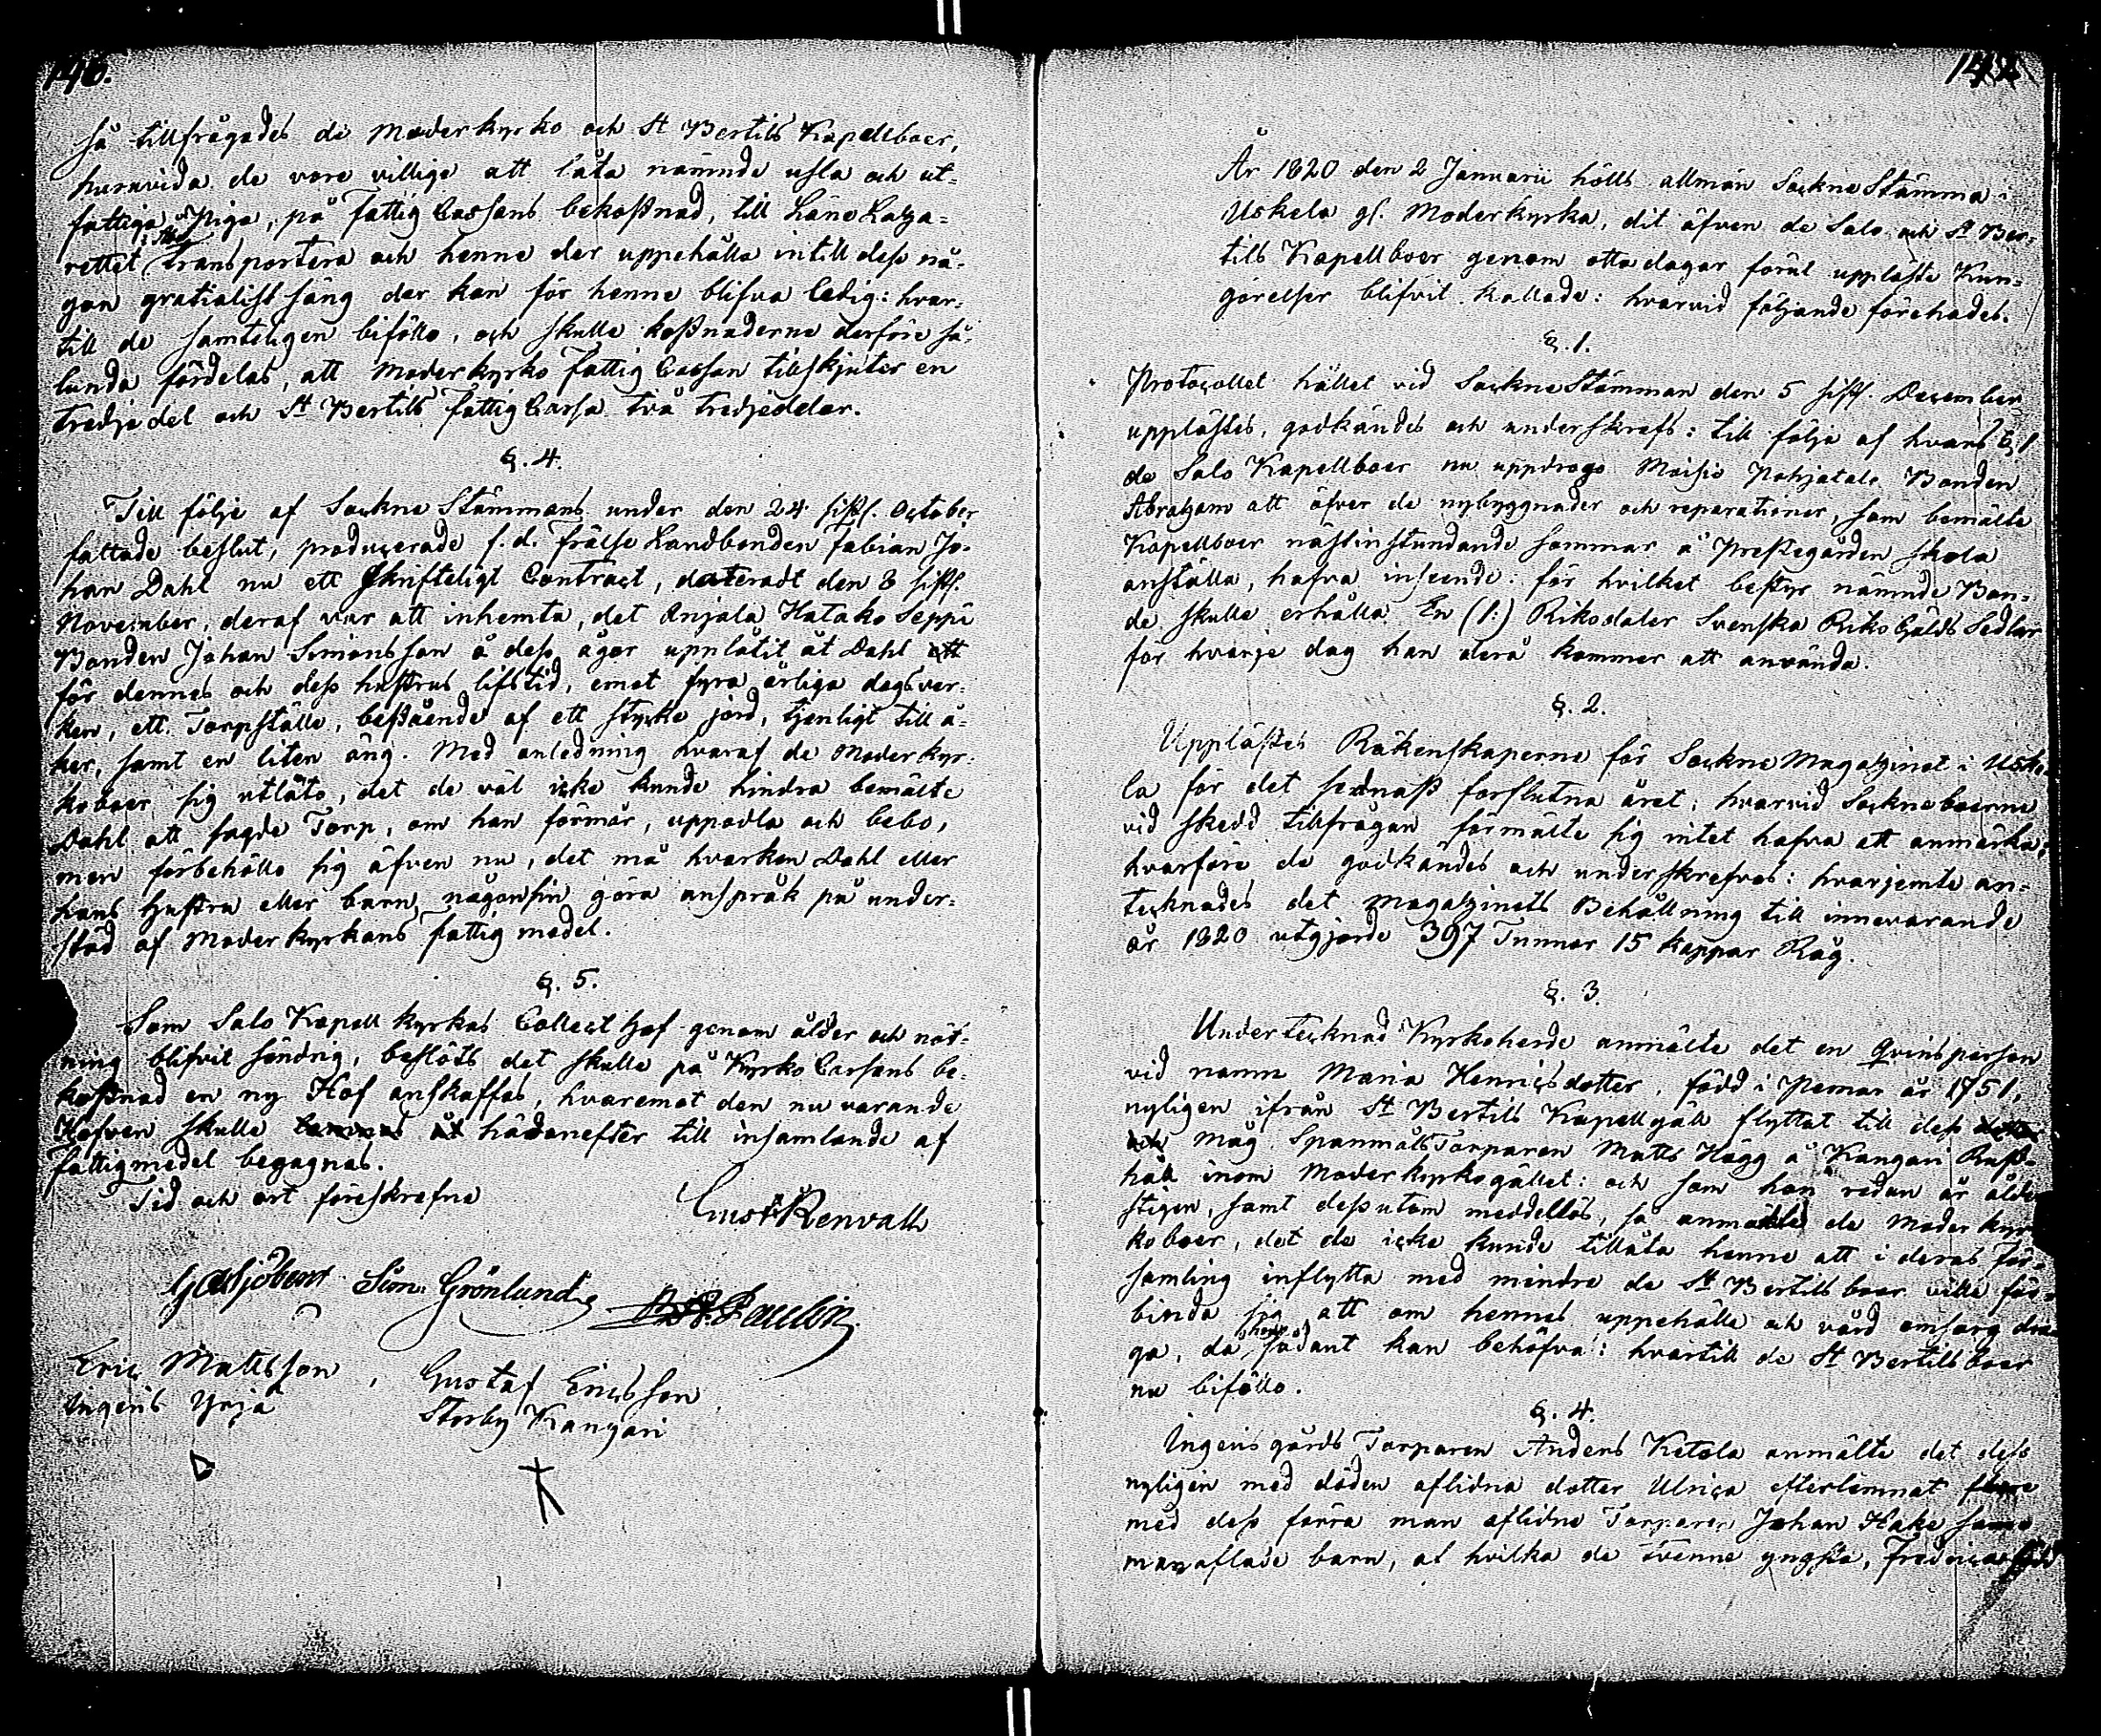 146.
så tillfrågades de Moderkyrko och St Bertils Kapellboer,
huruvida de vore villige att låta nämnde usla och ut-
fattiga Piga, på Fattig Cassans bekostnad, till Läns Laza-
rettet transportera och henne der uppehålla intill dess nå-
gon gratialist säng der kan för henne blifva ledig: hvar-
till de samteligen biföllo, och skulle kostnaderne derföre så-
lunda fördelas, att Moderkyrko Fattig Cassan tillskjuter en
tredjedel och St Bertils Fattig Cassa två tredjedelar.
§. 4.
Till följe af Sockne Stämmans under den 24 sistl. October
fattade beslut, producerade f. d. Frälse Landbonden Fabian Jo-
han Dahl nu ett Skrifteligt Contract, dateradt den 8 sistl.
November, deraf var att inhemta, det Anjala Hatako Seppi
Bonden Johan Simonsson å dess ägor upplåtit åt Dahl ett
för dennes och dess hustrus lifstid, emot fyra årliga dagsver-
ken, ett Torpställe, bestående af ett stycke jord, tjenligt till å-
ker, samt en liten äng. Med anledning hvaraf de Moderkyr-
koboer sig utläto, det de väl icke kunde hindra bemälte
Dahl att sagde Torp, om han förmår, uppodla och bebo,
men förbehöllo sig äfven nu, det må hvarken Dahl eller
hans Hustru eller barn någonsin göra anspråk på under-
stöd af Moderkyrkans fattig medel.
§. 5.
Som Salo Kapell kyrkas Collect Hof genom ålder och nöt-
ning blifvit söndrig, beslöts det skulle på Kyrko Cassans be-
kostnad en ny Hof anskaffas, hvaremot den nu varande
Hofven skulle hädanefter till insamlande af
fattigmedel begagnas.
Tid och ort föreskrefne
Gust Renvall
Sjöberg Sim. Grönlund Paulin
Eric Mattsson, Gustaf Ericsson
Ingeris Yrjä Storby Kangari
År 1820 den 2 Januarii hölls allmän Sockne Stämma i
Uskela gl. Moderkyrka, dit äfven de Salo och St Ber-
tils Kapellboer genom otta dagar förut uppläste Kun-
görelser blifvit kallade: hvarvid följande förehades.
§. 1.
Protocollet hållet vid Sockne Stämman den 5 sistl. December
upplästes, godkändes och underskrefs: till följe af hvars § 1
de Salo Kapellboer nu uppdrogo Moisio Pohjatalo Bonden
Abraham att öfver de nybyggnader och reparationer, som bemälte
Kapellboer nästinstundande sommar å Prestegården skola
anställa, hafva inseende: för hvilket bestyr nämnde Bon-
de skulle erhålla En (1:) Riksdaler Svenska Riks Gälds Sedlar
för hvarje dag han derå kommer att använda.
§. 2.
Upplästes Räkenskaperne för Sockne Magazinet i Uske-
la för det sednast forflutna året: hvarvid Sockneboerne
vid skedd tillfrågan förmälte sig intet hafva att anmärka,
hvarföre de godkändes och underskrefvos: hvarjemte an-
tecknades det Magazinets Behållning till innevarande
år 1820 utgjorde 397 Tunnor 15 kappar Råg.
§. 3.
Undertecknad Kyrkoherde anmälte det en Qvinsperson
vid namn Maria Henricsdotter, född i Pemar år 1751,
nyligen ifrån St Bertils Kapellgäll flyttat till dess
Måg Spanmåls Torparen Matts Hägg å Kangari Rust-
håll inom Moderkyrkogället: och som hon redan är ålder-
stigen, samt dessutom meddellös, så anmälte de Moderkyr-
koboer, det de icke kunde tillåta henne att i deras För-
samling inflytta med mindre de St Bertils boer ville för-
binda sig att om hennes uppehälle och vård omsorg dra-
ga, då hon sådant kan behöfva: hvartill de St Bertils boer
nu biföllo.
§. 4.
Ingeris gårds Torparen Anders Ketola anmälte det dess
nyligen med döden aflidna dotter Ulrica efterlemnat flere
med dess förra man aflidne Torparen Johan Hake samm-
manaflade barn, af hvilka de tvenne yngsta, Fredrica